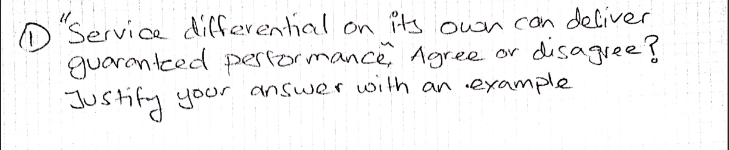 ① "Service differential on its own can deliver
guaranteed performance", Agree or disagree?
Justify your answer with an example